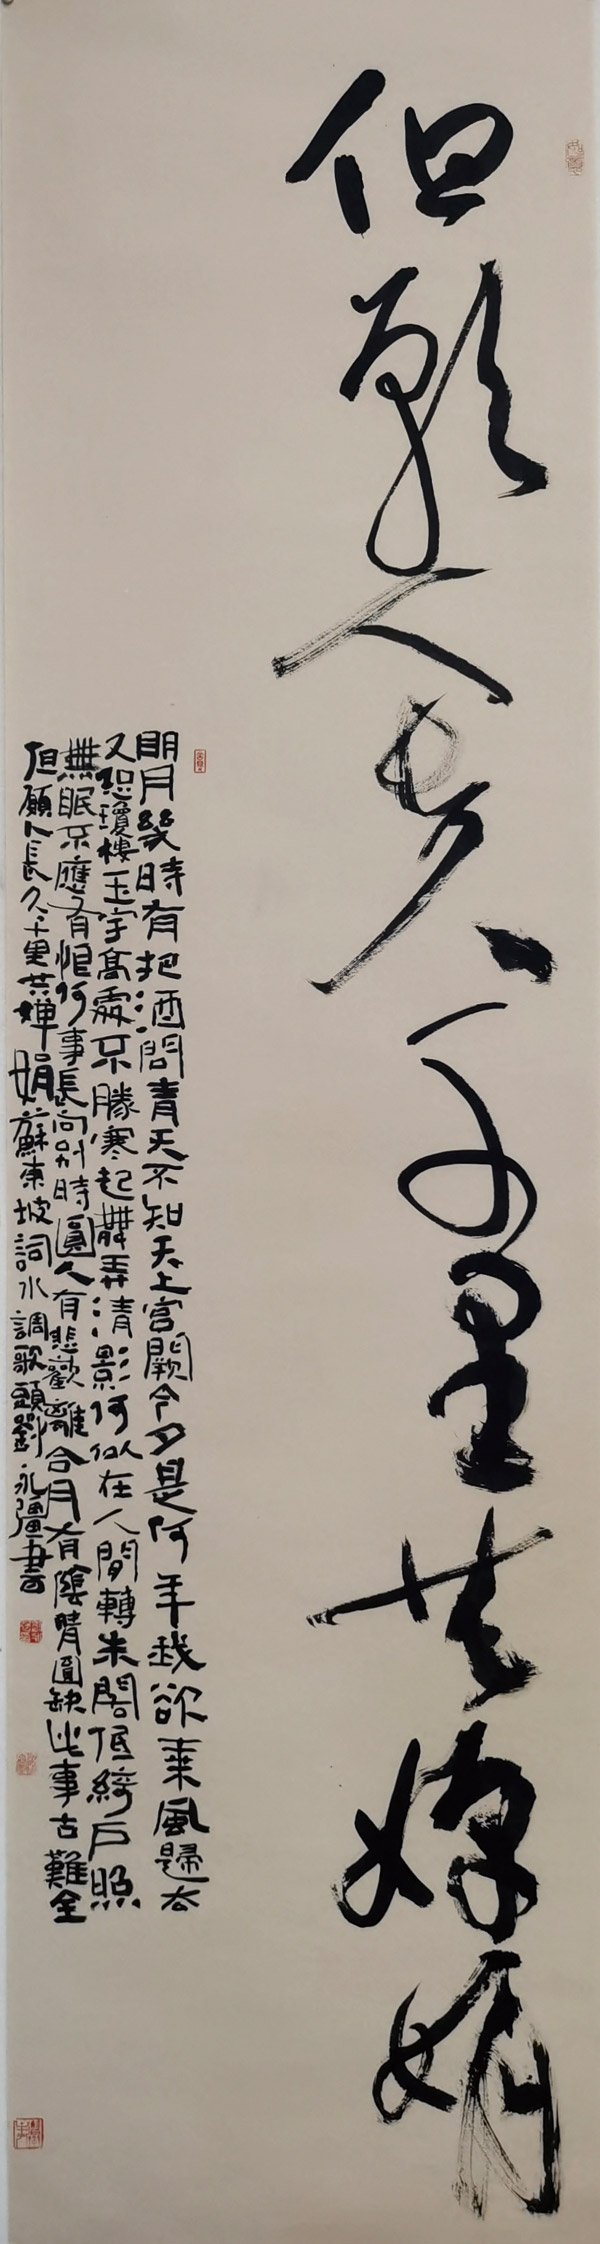 但願人長久千里共嬋娟
明月幾時有把酒問青天不知天上宮闕今夕是何年我欲乘風歸去
又恐瓊樓玉宇高處不勝寒起舞弄清影何似在人間轉朱閣低綺戶照
無眠不應有恨何事長向別時圓人有悲歡離合月有陰晴圓缺此事古難全
但願人長久千里共嬋娟蘇東坡詞水調歌頭劉永彊書